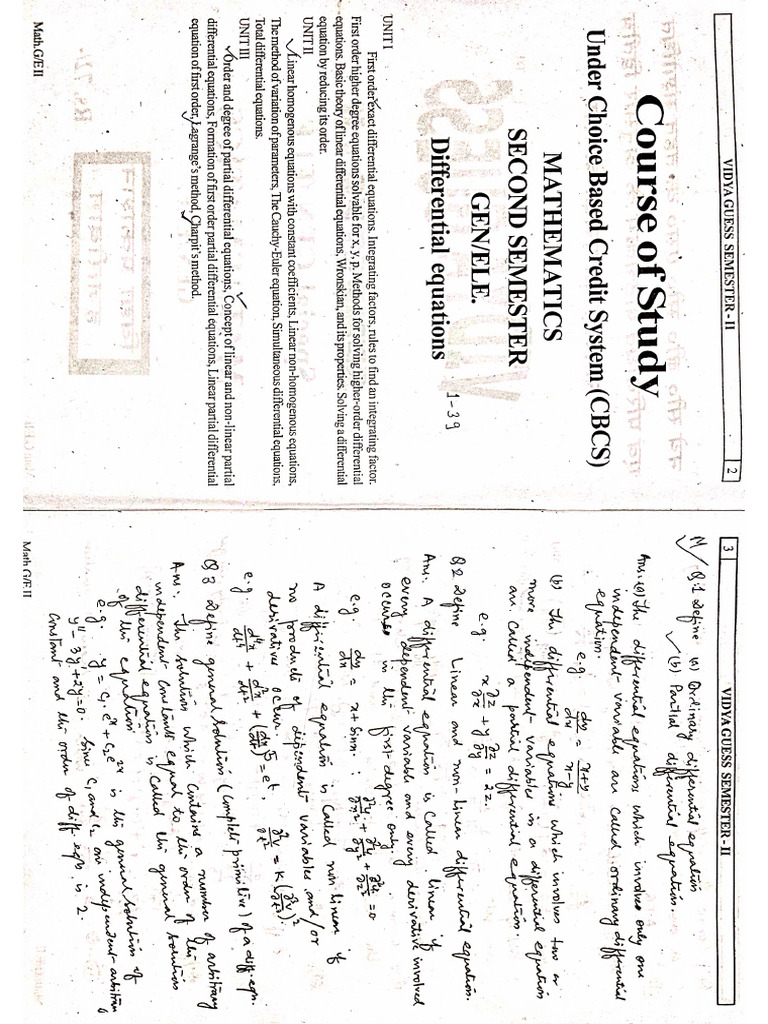 VIDYA GUESS SEMESTER - II 2
Course of Study
Under Choice Based Credit System (CBCS)
MATHEMATICS
SECOND SEMESTER
GEN/ELE.
Differential equations
1-39
UNIT I
First order exact differential equations. Integrating factors, rules to find an integrating factor.
First order higher degree equations solvable for x, y, p. Methods for solving higher-order differential
equations. Basic theory of linear differential equations, Wronskian, and its properties. Solving a differential
equation by reducing its order.
UNIT II
Linear homogenous equations with constant coefficients, Linear non-homogenous equations,
The method of variation of parameters, The Cauchy-Euler equation, Simultaneous differential equations,
Total differential equations.
UNIT III
Order and degree of partial differential equations, Concept of linear and non-linear partial
differential equations, Formation of first order partial differential equations, Linear partial differential
equation of first order, Lagrange's method, Charpit's method.
Math.G/E II
3 VIDYA GUESS SEMESTER - II
Q.1 Define (a) Ordinary differential equation
(b) Partial differential equation.
Ans. (a) The differential equations which involve only one
independent variable are called ordinary differential
equation.
e.g. dy/dx = x+y/x-y
(b) The differential equations which involves two or
more independent variables in a differential equation
are called a partial differential equation.
e.g. x ∂z/∂x + y ∂z/∂y = 2z.
Q 2 Define Linear and non-linear differential equation.
Ans. A differential equation is called linear if
every dependent variable and every derivative involved
occurs in the first degree only.
e.g. dy/dx = x + sinx ; ∂²u/∂x² + ∂²u/∂y² + ∂²u/∂z² = 0
A differential equation is called non linear if
no products of dependent variables and/or
derivatives occur.
e.g. d⁴x/dt⁴ + d²x/dt² + (dx/dt)⁵ = eᵗ, ∂²v/∂t² = K(∂³v/∂t³)²
Q 3 Define general solution (complete primitive) of a diff. eqn.
Ans. The solution which contains a number of arbitrary
independent constants equal to the order of the
differential equation is called the general solution
of the equation
e.g. y = c₁eˣ + c₂e²ˣ is the general solution of
y'' - 3y' + 2y = 0. Since c₁ and c₂ are independent arbitrary
constant and the order of diff eqn is 2.
Math G/E II